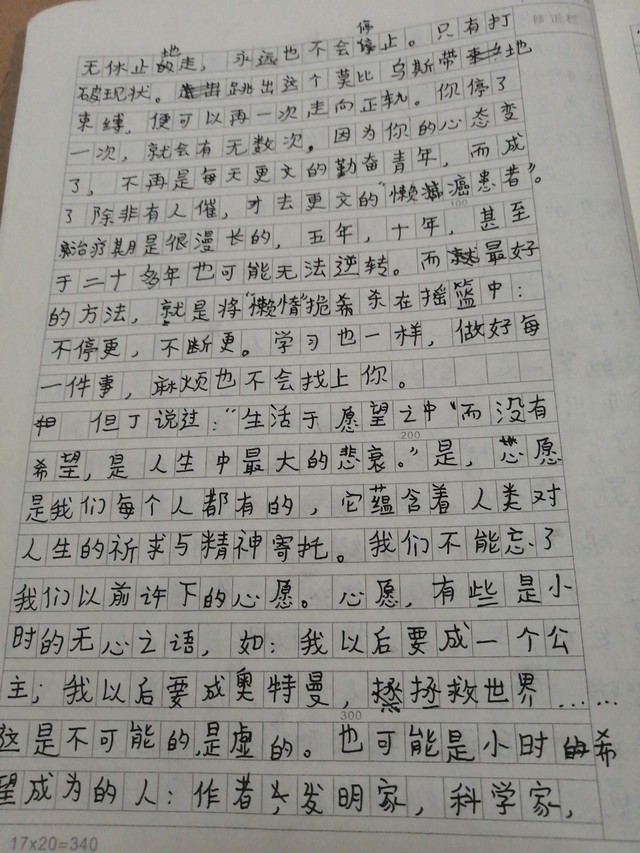 无休止地走，永远也不会停止。只有打
破现状。跳出这个莫比乌斯带地
束缚，便可以再一次走向正轨。你停了
一次，就会有无数次，因为你的心态变
了，不再是每天更文的勤奋青年，而成
了除非有人催，才去更文的“懒癌患者”。
100
治疗期是很漫长的，五年，十年，甚至
于二十多年也可能无法逆转。而最好
的方法，就是将“懒惰”扼杀在摇篮中：
不停更，不断更。学习也一样，做好每
一件事，麻烦也不会找上你。
但丁说过：“生活于愿望之中“而没有
200
希望，是人生中最大的悲哀。”是，愿
是我们每个人都有的，它蕴含着人类对
人生的祈求与精神寄托。我们不能忘了
我们以前许下的心愿。心愿，有些是小
时的无心之语，如：我以后要成一个公
主；我以后要成奥特曼，拯救世界……
300
这是不可能的，是虚的。也可能是小时希
望成为的人：作者，发明家，科学家，
17x20=340